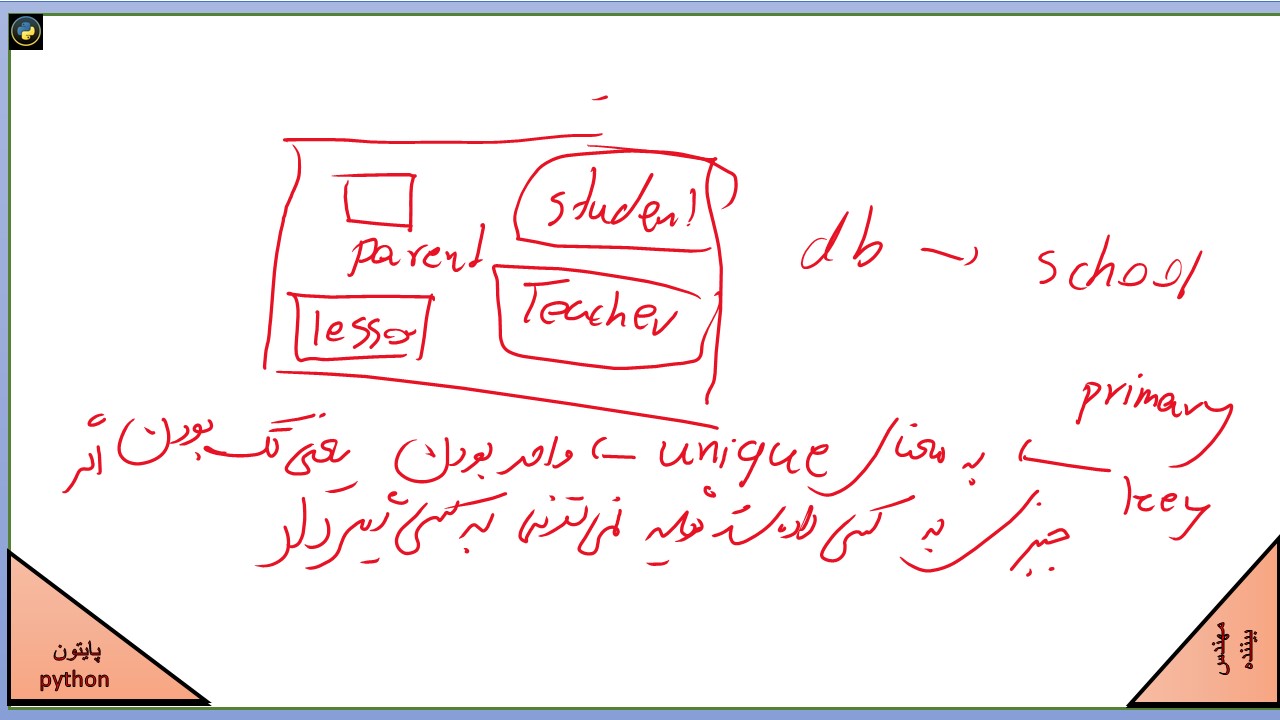 student
parent
Teacher
lesso
db → school
primary key
← به معنای unique ← واحد بودن یعنی تک بودن اگر
چیزی به کسی داده شد نمی به کسی دیگر داد
پایتون
python
مهندس
بیننده